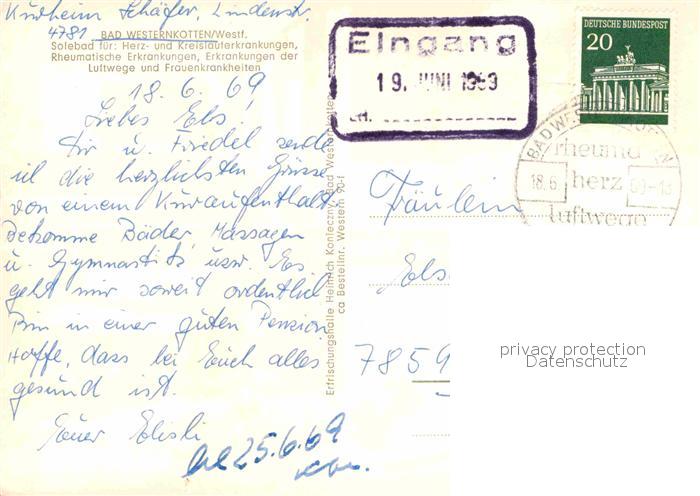 Kurheim Schäfer, Lindenstr.
4781 BAD WESTERNKOTTEN/Westf.
Solebad für: Herz- und Kreislauferkrankungen,
Rheumatische Erkrankungen, Erkrankungen der
Luftwege und Frauenkrankheiten
18.6.69
Liebes Els!
Dir u. Friedel sende
ich die herzlichsten Grüsse
von einem Kuraufenthalt.
Bekomme Bäder, Massagen
u. Gymnastik usw. Es
geht mir soweit ordentlich
Bin in einer guten Pension
Hoffe, dass bei Euch alles
gesund ist.
Euer
25.6.69
Erfrischungshalle Heinrich Konieczny, Bad Westernkotten
ca Bestellnr. Western 90-f
Eingang
19. JUNI 1969
DEUTSCHE BUNDESPOST
20
BAD WESTERNKOTTEN
rheuma
18.6. herz 69-18
luftwege
Fräulein
Els
7859
privacy protection
Datenschutz